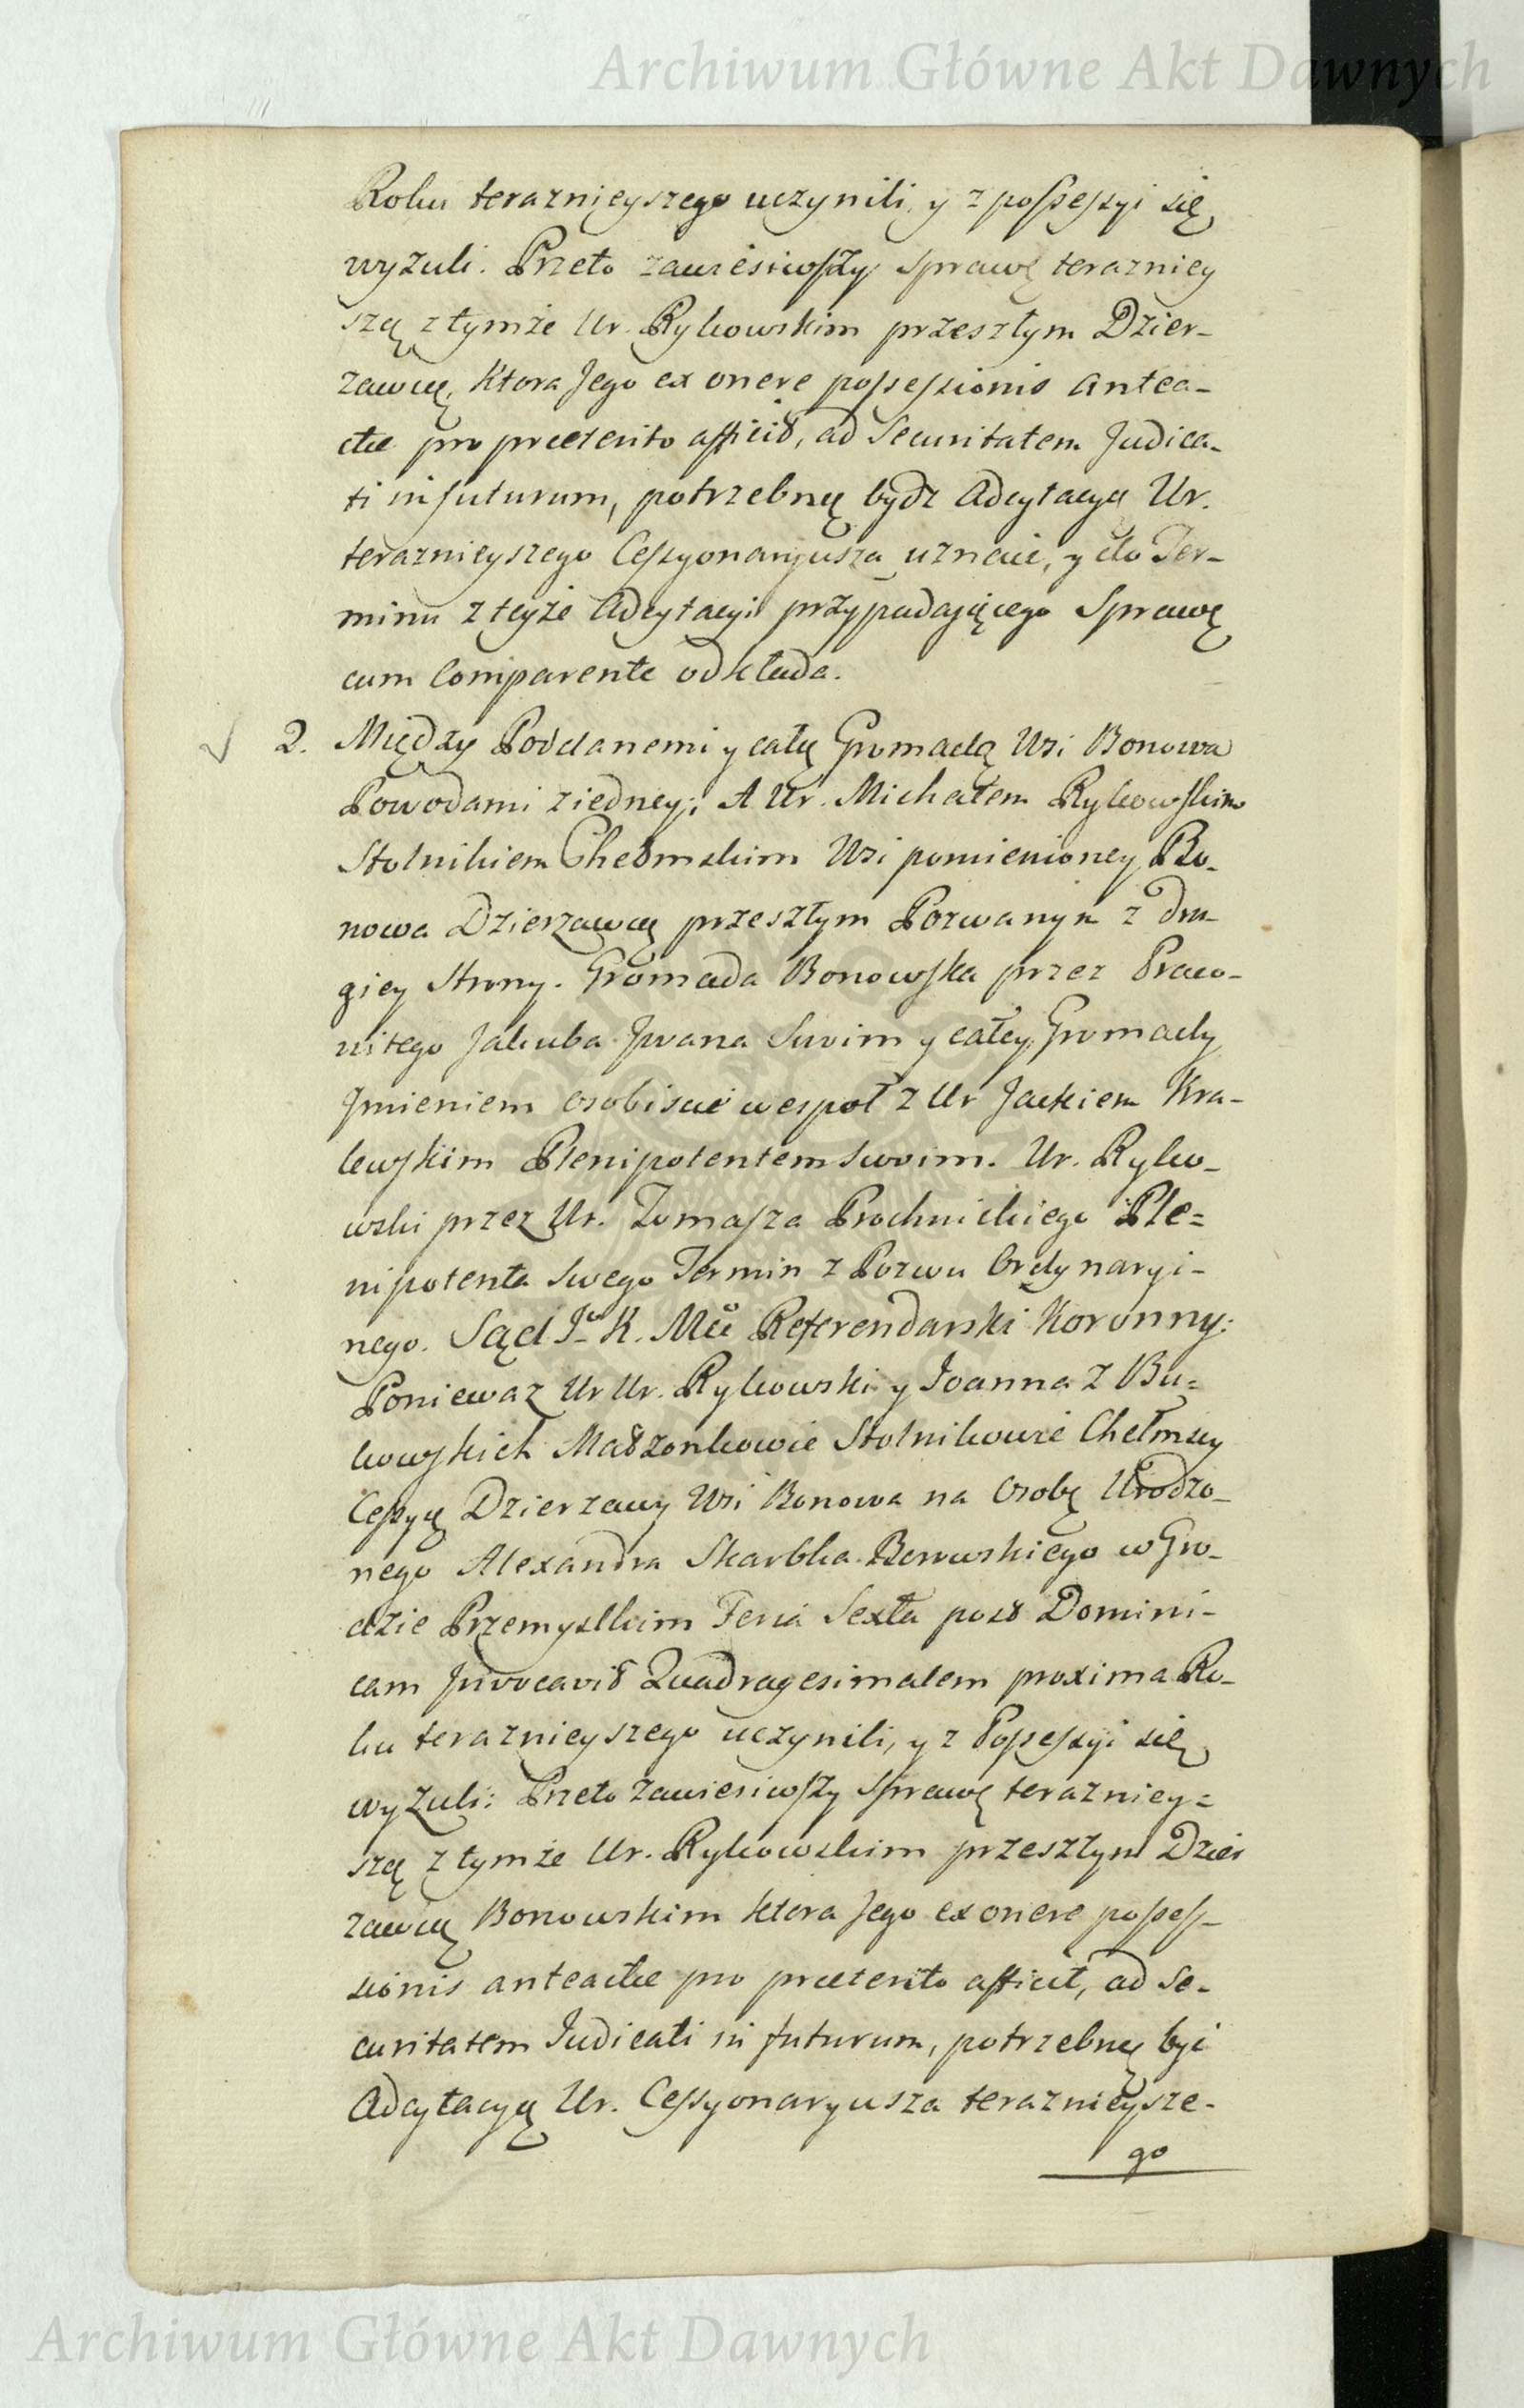 Archiwum Główne Akt Dawnych
Roku teraznieyszego uczynili, y z possessyi się
wyzuli. Przeto zawiesiwszy sprawę terazniey
szą z tymże Ur. Rykowskim przeszłym Dzier-
zawcą, ktora Jego ex onere possessionis antea-
ctæ pro præterito afficit, ad Securitatem Judica-
ti in futurum, potrzebną bydz Adcytacyą Ur.
teraznieyszego Cessyonaryusza uznaie, y do Ter-
minu z teyże Adcytacyi przypadającego Sprawę
cum Comparente odkłada.
2. Między Poddanemi y całą Gromadą Wsi Bonowa
Powodami z iedney; A Ur. Michałem Rykowskim
Stolnikiem Chełmskim Wsi pomienioney Bo-
nowa Dzierzawcą przeszłym Pozwanym z dru-
giey Strony. Gromada Bonowska przez Praco-
witego Jakuba Iwana Swoim y całey Gromady
Imieniem osobiscie wespoł z Ur Jackiem Kra-
lewskim Plenipotentem swoim. Ur. Ryko-
wski przez Ur. Tomasza Prochnickiego Ple=
nipotenta swego Termin z Pozwu Ordynaryi-
nego. Sąd Jo K. Mci Referendarski Koronny:
Poniewaz Ur Ur. Rykowski y Joanna z Bu=
kowskich Małzonkowie Stolnikowie Chełmscy
Cessyą Dzierzawy Wsi Bonowa na Osobę Urodzo-
nego Alexandra Skarbka Borowskiego w Gro-
dzie Przemyslkim Feria Sexta post Domini-
cam Invocavit Quadragesimalem proxima Ro-
ku teraznieyszego uczynili, y z Possessyi się
wyzuli: Przeto zawiesiwszy sprawę terazniey=
szą z tymże Ur. Rykowskim przeszłym Dzier
zawcą Bonowskim ktora Jego ex onere posses-
sionis anteactæ pro præterito afficit, ad Se-
curitatem Judicati in futurum, potrzebną byi
Adcytacyą Ur. Cessyonaryusza teraznieysze-
go
Archiwum Główne Akt Dawnych